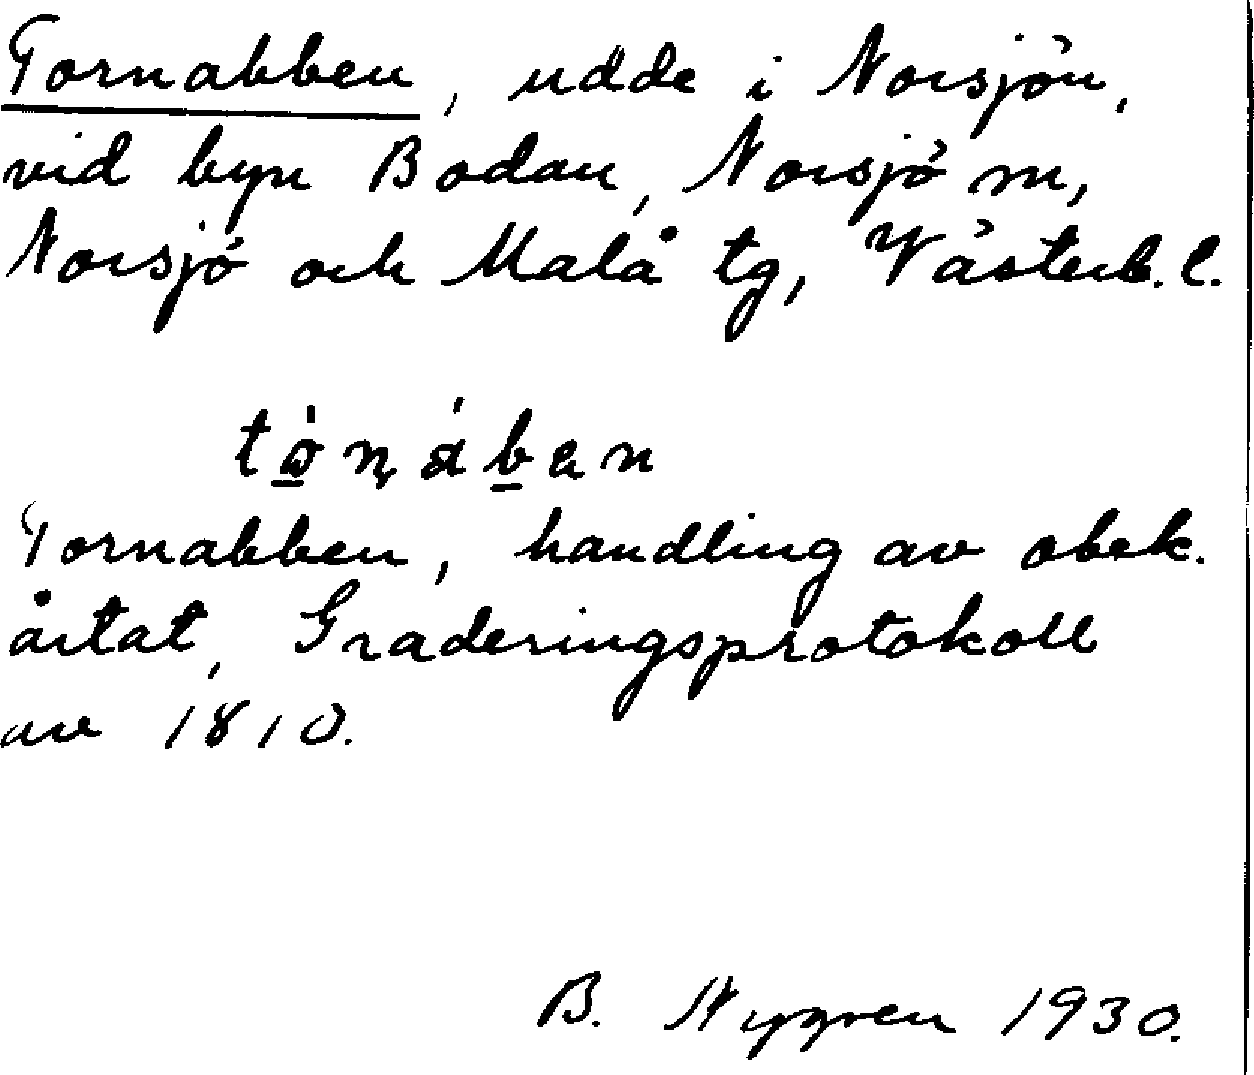 Tornabben, udde i Norsjön,
vid byn Bodan, Norsjö sn,
Norsjö och Malå tg, Västerb. l.
Tornabben, handling av obek.
årtat, Graderingsprotokoll
av 1810.
B. Nygren 1930.